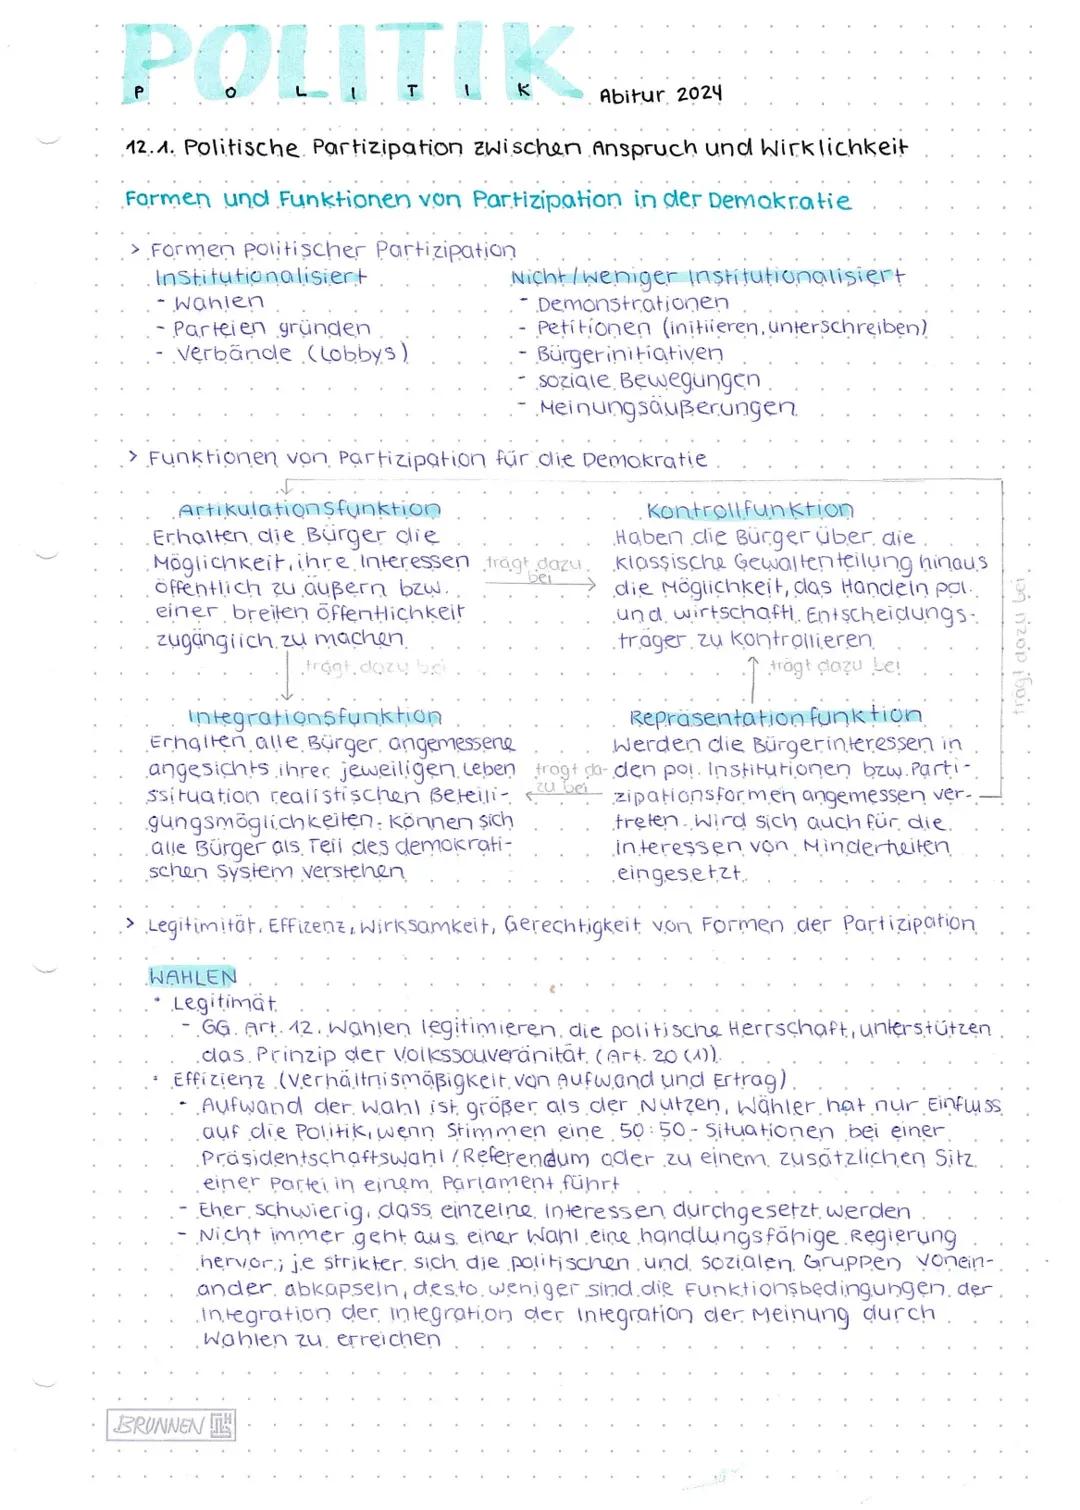 POLITIK
P O L I T I K Abitur 2024
12.1. Politische Partizipation zwischen Anspruch und Wirklichkeit
Formen und Funktionen von Partizipation in der Demokratie
> Formen politischer Partizipation
Institutionalisiert
- Wahlen
- Parteien gründen
- Verbände (Lobbys)
Nicht/weniger Institutionalisiert
- Demonstrationen
- Petitionen (initiieren, unterschreiben)
- Bürgerinitiativen
- soziale Bewegungen
- Meinungsäußerungen
> Funktionen von Partizipation für die Demokratie
Artikulationsfunktion
Erhalten die Bürger die
Möglichkeit, ihre Interessen
öffentlich zu äußern bzw.
einer breiten öffentlichkeit
zugänglich zu machen
trägt dazu
bei
Kontrollfunktion
Haben die Bürger über die
klassische Gewaltenteilung hinaus
die Möglichkeit, das Handeln pol.
und wirtschaftl. Entscheidungs-
träger zu kontrollieren
trägt dazu bei
trägt dazu bei
trägt dazu bei
Integrationsfunktion
Erhalten alle Bürger angemessene
angesichts ihrer jeweiligen Leben
ssituation realistischen Beteili-
gungsmöglichkeiten. Können sich
alle Bürger als Teil des demokrati-
schen System verstehen
trägt da-
zu bei
Repräsentationfunktion
Werden die Bürgerinteressen in
den pol. Institutionen bzw. Parti-
zipationsformen angemessen ver-
treten. Wird sich auch für die
Interessen von Minderheiten
eingesetzt.
> Legitimität, Effizenz, Wirksamkeit, Gerechtigkeit von Formen der Partizipation
WAHLEN
• Legitimät
- GG. Art. 12. Wahlen legitimieren die politische Herrschaft, unterstützen
das Prinzip der Volkssouveränität (Art. 20 (1)).
• Effizienz (Verhältnismäßigkeit von Aufwand und Ertrag)
- Aufwand der Wahl ist größer als der Nutzen, Wähler hat nur Einfluss
auf die Politik, wenn Stimmen eine 50:50-Situationen bei einer
Präsidentschaftswahl/Referendum oder zu einem zusätzlichen Sitz
einer Partei in einem Parlament führt
- Eher schwierig, dass einzelne Interessen durchgesetzt werden
- Nicht immer geht aus einer Wahl eine handlungsfähige Regierung
hervor; je strikter sich die politischen und sozialen Gruppen vonein-
ander abkapseln, desto weniger sind die Funktionsbedingungen der
Integration der Integration der Integration der Meinung durch
Wahlen zu erreichen
BRUNNEN